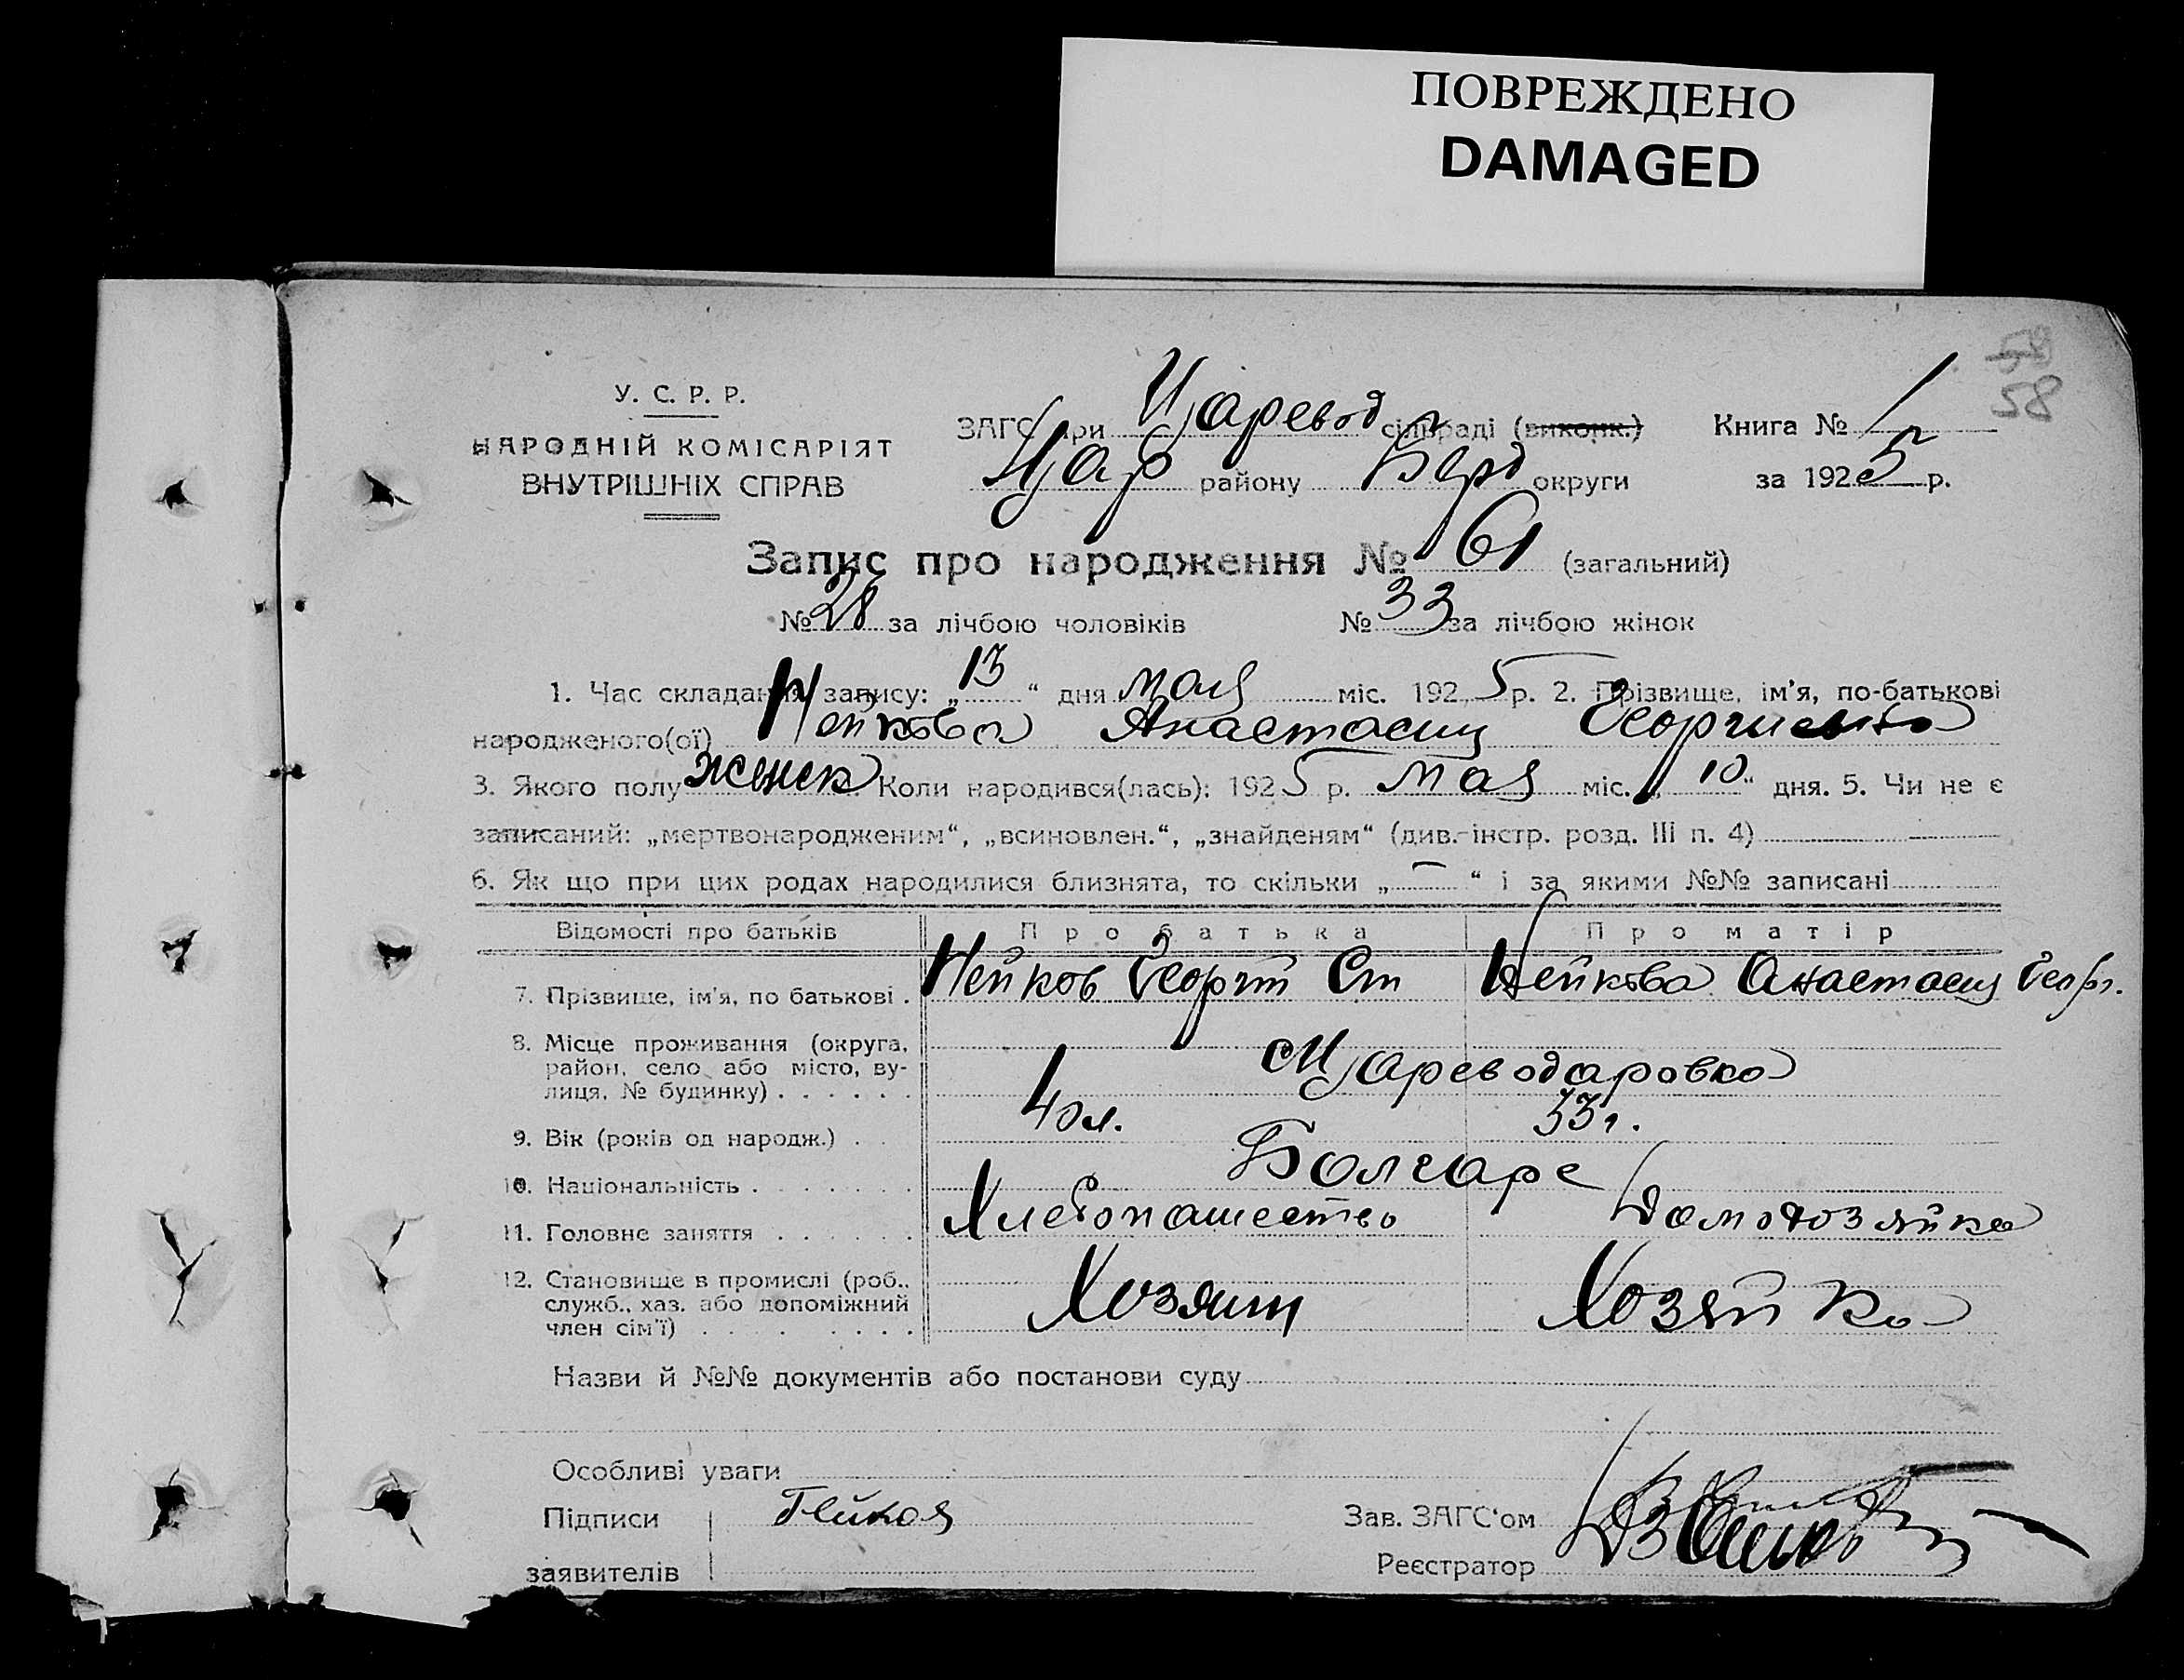 ПОВРЕЖДЕНО
DAMAGED
58
У. С. Р. Р.
НАРОДНІЙ КОМІСАРІЯТ
ВНУТРІШНІХ СПРАВ
ЗАГС при Царевод сільраді (виконк.) Книга № 1
Цар району Берд округи за 1925 р.
Запис про народження № 61 (загальний)
№ 28 за лічбою чоловіків № 33 за лічбою жінок
1. Час складання запису: „13“ дня мая міс. 1925 р. 2. Прізвище, ім'я, по-батькові
народженого(ої) Нейкова Анастасия Георгиевна
3. Якого полу женск Коли народився(лась): 1925 р. мая міс. „10“ дня. 5. Чи не є
записаний: „мертвонародженим“, „всиновлен.“, „знайденям“ (див. інстр. розд. III п. 4)
6. Як що при цих родах народилися близнята, то скільки „—“ і за якими №№ записані
Відомості про батьків Про батька Про матір
7. Прізвище, ім'я, по батькові . Нейков Георгий Ст Нейкова Анастасия Георг.
8. Місце проживання (округа,
район, село або місто, ву-
лиця, № будинку) . . . . . . с Цареводаровка
9. Вік (років од народж.) . . 40 л. 33 г.
10. Національність . . . . . . . Болгаре
11. Головне заняття . . . . . . Хлебопашество Домохозяйка
12. Становище в промислі (роб.,
служб., хаз. або допоміжний
член сім'ї) . . . . . . . . Хозяин Хозяйка
Назви й №№ документів або постанови суду
Особливі уваги
Підписи Нейков Зав. ЗАГС'ом
заявителів Реєстратор